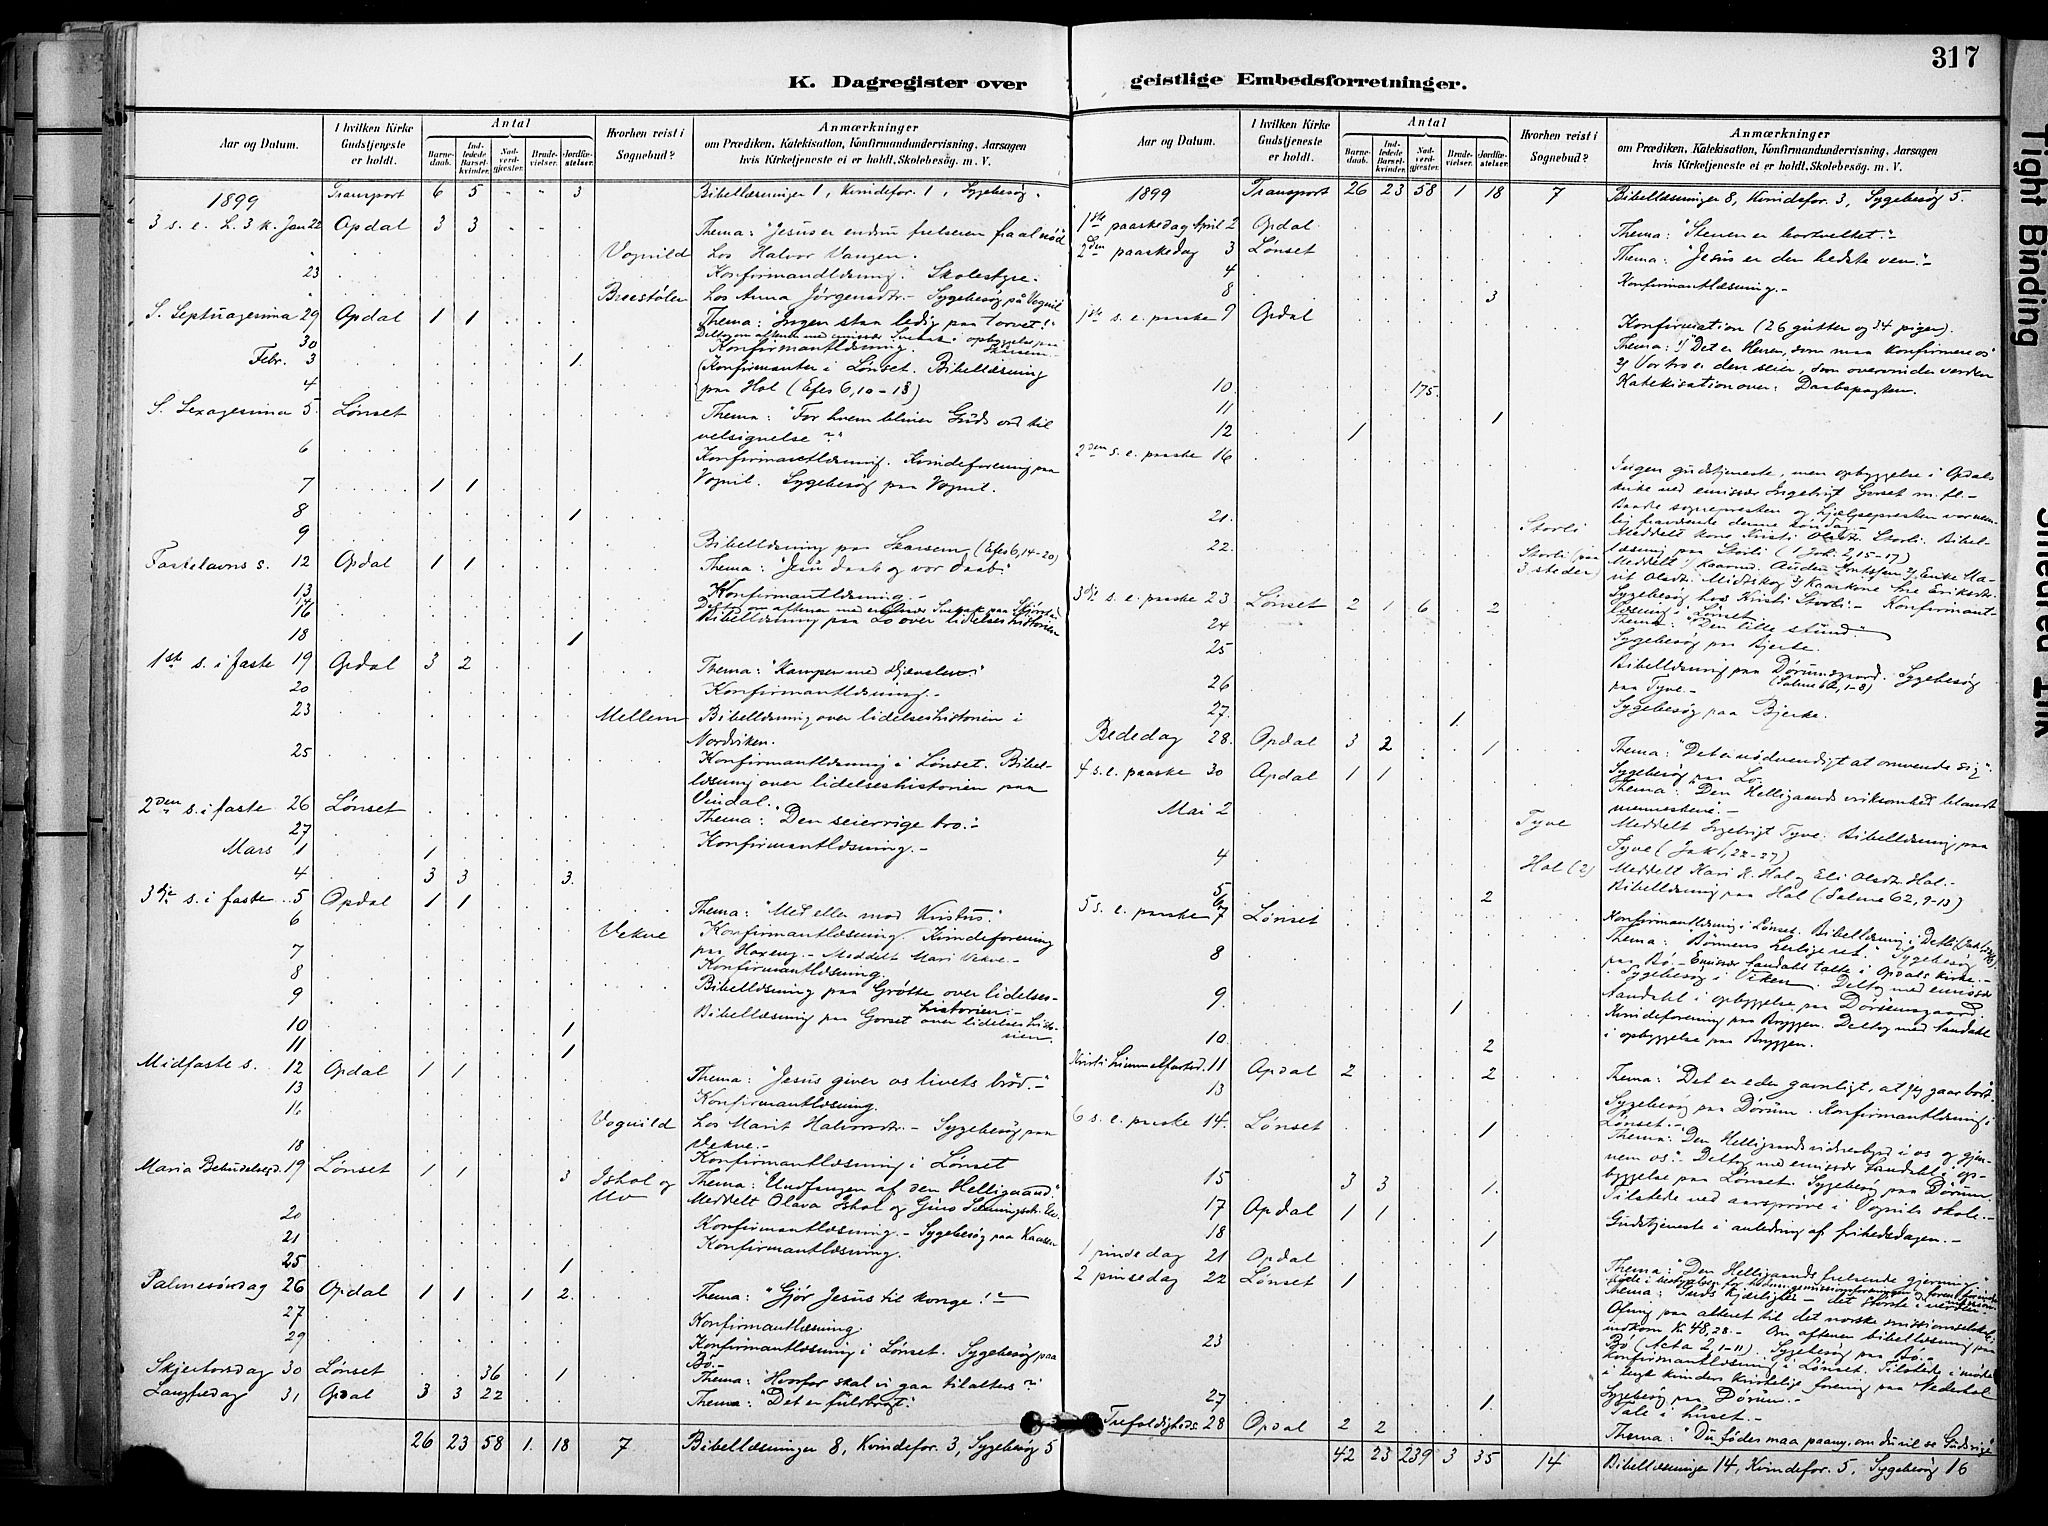 317
K. Dagregister over geistlige Embedsforretninger.
Aar og Datum. I hvilken Kirke Gudstjeneste er holdt. Antal Barnedaab. Indledede Barselkvinder. Nadverdgjester. Brudevielser. Jordfæstelser. Hvorhen reist i Sognebud? Anmærkninger om Prædiken, Katekisation, Konfirmandundervisning, Aarsagen hvis Kirketjeneste ei er holdt, Skolebesøg m. V.
1899 Transport 6 5 " " 3 Bibellæsninger 1, Kvindefor. 1, Sygebesøg "
3 s. e. H. 3 k. Jan 22 Opdal 3 3 Thema: "Jesus er endnu frelseren fra al nød"
" Vognild Hos Halvor Vangen.
23 Konfirmandlæsning. Skolestyre.
" Hos Anna Jørgensdtr. - Sygebesøg på Vognil
S. Septuagesima 29 Opdal 1 1 Thema: "Ingen staa ledig paa torvet!"
30 Konfirmantlæsning.
Febr. 3 1. (Konfirmanter i Lønset. Bibellæsning
4 paa Hol (Efes 6, 10-18)
S. Sexagesima 5. Lønset Thema: "For hvem bliver Guds ord til
velsignelse?"
6 Konfirmantlæsning. Kvindeforening paa
7 1 1 Vognil. Sygebesøg paa Vognil.
8 1
9 Bibellæsning paa (Efes 6, 14-20)
Fastelavns s. 12 Opdal 1 1 Thema: "Jesu daab og vor daab."
13 Konfirmantlæsning. -
16 Bibellæsning paa Lo over lidelseshistorien
18 1
1ste s. i faste 19 Opdal 3 2 Thema: "Kampen med djævelen"
20 Konfirmantlæsning. -
23 Mellem Bibellæsning over lidelseshistorien i
Nordviken.
25 Konfirmantlæsning i Lønset. Bibel-
læsning over lidelseshistorien paa
Vindal.
2den s. i faste 26 Lønset Thema: "Den seierrige tro."
27 Konfirmantlæsning. -
Mars 1 1
4 3 3 3.
3dje s. i faste 5 Opdal 1 1 Thema: "Med eller mod Kristus."
6 Vekve Konfirmantlæsning. Kvindeforening
7 paa - Meddelt Mari Vekve. -
8 Konfirmantlæsning.
9 Bibellæsning paa Grøtte over lidelses-
historien. -
10 1 Bibellæsning paa Gorset over lidelseshisto-
rien.
11 1
Midfaste s. 12 Opdal 1 1 Thema: "Jesus giver os livets brød."
13 Konfirmantlæsning.
16 Vognild Hos Marit Halvorsdtr. - Sygebesøg paa
Vekve. -
18 Konfirmantlæsning i Lønset
Maria Bebudelsesd. 19 Lønset 1 1 3 Ishol og Thema: "Undfangen af den Helligaand."
Meddelt Olava Ishol og
20 Konfirmantlæsning. - Sygebesøg paa
21 Konfirmantlæsning.
25 1
Palmesøndag 26 Opdal 1 1 1 2. Thema: "Gjør Jesus til konge!"
27 Konfirmantlæsning.
29 Konfirmantlæsning i Lønset. Sygebesøg paa
Bø. -
Skjertorsdag 30 Lønset 36 1 Thema: "Hvorfor skal vi gaa til alters?"
Langfredag 31 Opdal 3 3 22 Thema: "Det er fuldbragt."
26 23 58 1. 18 7 Bibellæsninger 8, Kvindefor. 3, Sygebesøg 5
Aar og Datum. I hvilken Kirke Gudstjeneste er holdt. Antal Barnedaab. Indledede Barselkvinder. Nadverdgjester. Brudevielser. Jordfæstelser. Hvorhen reist i Sognebud? Anmærkninger om Prædiken, Katekisation, Konfirmandundervisning, Aarsagen hvis Kirketjeneste ei er holdt, Skolebesøg m. V.
1899 Transport 26 23 58 1 18 7 Bibellæsninger 8, Kvindefor. 3, Sygebesøg 5.
1ste paaskedag April 2 Opdal Thema: "Stenen er bortveltet."
2den paaskedag 3 Lønset Thema: "Jesus er den bedste ven."
4 Konfirmantlæsning. -
8 3
1ste s. e. paaske 9 Opdal Konfirmation (26 gutter og 34 piger).
Thema: 1) Det er Herren, som maa konfirmere os
2) Vor tro er den seier, som overvinder verden
10. 175. Katekisation over: Daabspagten.
11 1
12 1
2den s. e. paaske 16 Ingen gudstjeneste, men opbyggelse i Opdals
kirke ved emissær Ingebrigt Gorset m. fl. -
Baade sognepresten og hjælpepresten var nem-
lig fraværende denne søndag. -
21. Storli Meddelt kone Kristi Olsdtr Storli. Bibel-
læsning paa Storli (1 Joh. 2, 15-17)
22. Storli (paa 3 steder) Meddelt
3dje s. e. paaske 23 Lønset 2 1 6 2 Sygebesøg hos Kristi Storli. - Konfirmant-
læsning i Lønset.
24 Thema: "Den lille stund."
25 Sygebesøg paa Bjerke.
26 Bibellæsning paa Sygebesøg
paa Tyve. - (Salme 62, 1-8)
27. 1. Sygebesøg paa Bjerke.
Bededag 28. Opdal 3 2 1 Thema: "Det er nødvendigt at omvende sig".
4 s. e. paaske 30 Opdal 1 1 Sygebesøg paa Lo.
Thema: "Den Helligaands virksomhed blandt
menneskene". -
Mai 2 Tyve Meddelt Ingebrigt Tyve. Bibellæsning paa
Tyve (Jak 1, 22-27)
4 Hol (2) Meddelt Kari H. Hol og Eli Olsdtr. Hol. -
Bibellæsning paa Hol (Salme 62, 9-13)
5 2
6 Konfirmantlæsning i Lønset. Bibellæsning i
5 s. e. paaske 7 Lønset Thema: "Bønnens herlige ret." Sygebesøg
paa Bø. - Emissær Sandahl talte i Opdals kirke. -
8 Sygebesøg i Viken. Deltog med emissær
9 1 Sandahl i opbyggelse paa
Kvindeforening paa Bryggen. Deltog med Sandahl
10. 2 i opbyggelse paa Bryggen.
Kristi himmelfartsd. 11 Opdal 2 2 Thema: "Det er eder gavnligt, at jeg gaar bort
13 Sygebesøg paa Dørum. Konfirmantlæsning i
Lønset. -
6 s. e. paaske 14. Lønset 1 Thema: "Den Helligaands vidnesbyrd i os og gjen-
nem os". Deltog med emissær Sandahl i op-
15 3 3 1. byggelse paa Lønset. Sygebesøg paa Dørum.
17 Opdal 1 1 Tilstede ved aarsprøve i Vognils skole. -
18 1 Gudstjeneste i anledning af frihedsdagen. -
1 pinsedag 21 Opdal Thema: "Den Helligaands frelsende gjerning"
2 pinsedag 22 Lønset 1 Thema: "Guds kjærlighed - det største i verden"
Ofring paa alteret til det norske missionsselskab
indkom Kr 48,28. - Om aftenen bibellæsning paa
23 Bø (Acta 2, 1-11). Sygebesøg paa Bø. -
Konfirmantlæsning i Lønset. Tilstede i møte
i unge kvinders kristelige forening paa
27 1. Sygebesøg paa Dørum.
Tale i huset. -
Trefoldigheds. 28 Opdal 2 2 Thema: "Du fødes maa paany, om du vil se Guds rige"
42 23 239 3 35 14 Bibellæsninger 14, Kvindefor. 5, Sygebesøg 16
Tight Binding
Smeared Ink